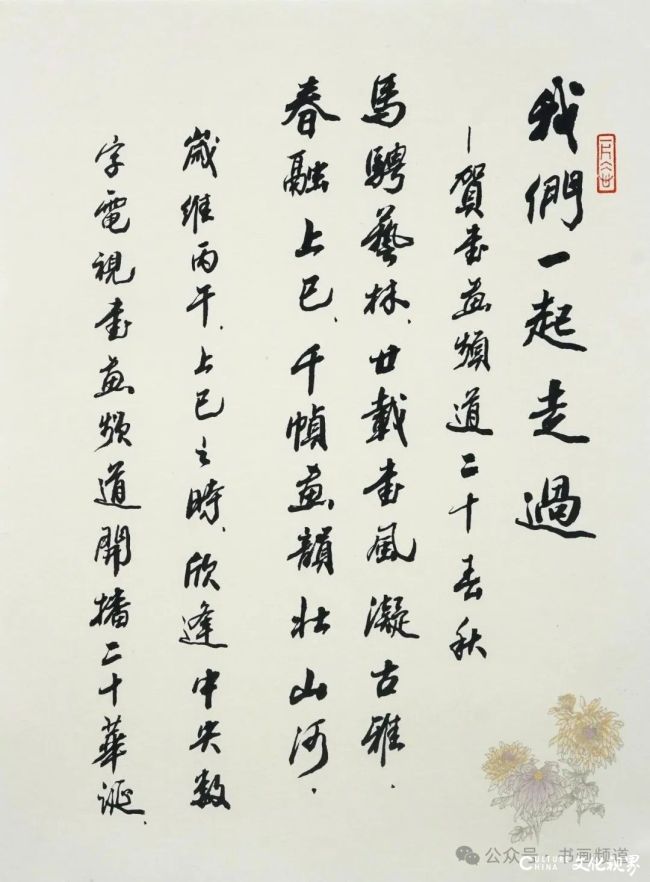 我們一起走過
—賀書畫頻道二十春秋
馬騁藝林、廿載書風凝古雅．
春融上巳、千幀畫韻壯山河．
歲維丙午、上巳之時、欣逢中央數
字電視書畫頻道開播二十華誕、
公众号·书画频道
CULTURE CHINA 文化视界